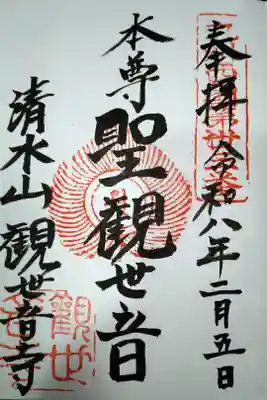 奉拝 令和八年二月五日
本尊 聖観世音
清水山 観世音寺